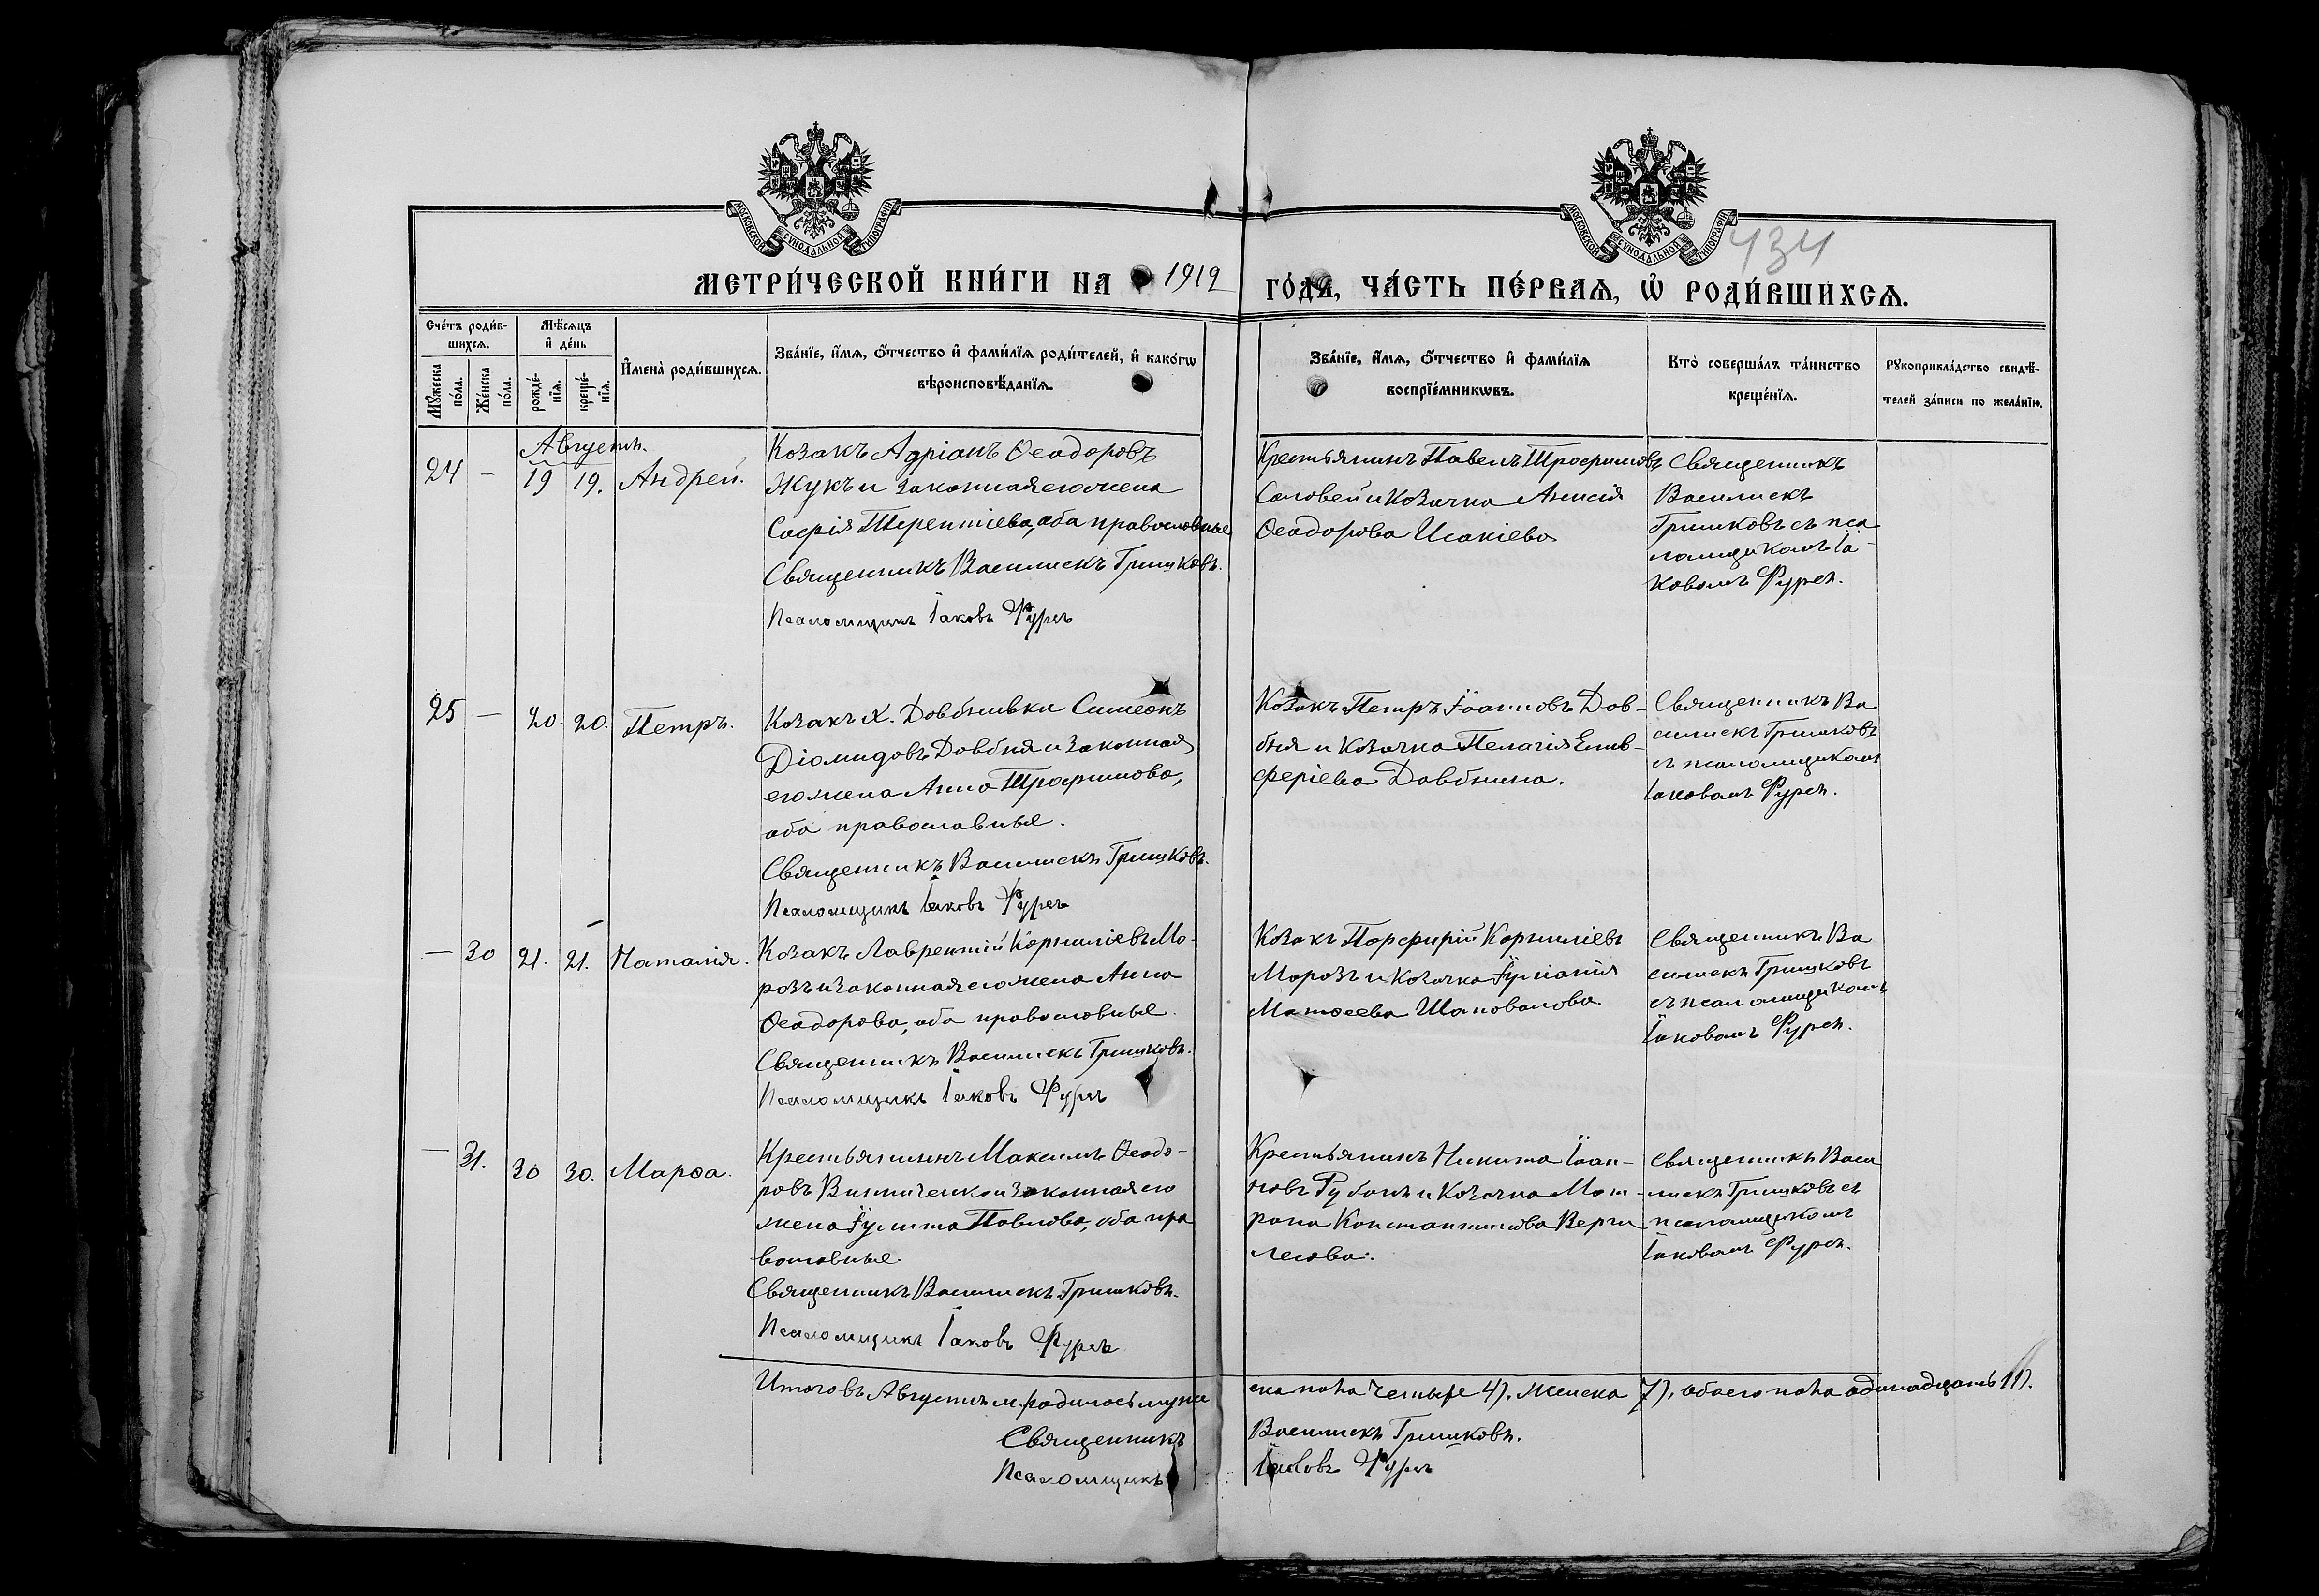 МОСКОВСКОЙ СѴНОДАЛЬНОЙ ТИПОГРАФІИ
МОСКОВСКОЙ СѴНОДАЛЬНОЙ ТИПОГРАФІИ
434
МЕТРИ́ЧЕСКОЙ КНИ́ГИ НА 1912 ГО́ДА, ЧА́СТЬ ПЕ́РВАѦ, Ѡ РОДИ́ВШИХСѦ.
Сче́тъ роди́в-
шихсѧ.
Мꙋ́жеска
по́ла.
Же́нска
по́ла.
Мѣ́сѧцъ
и҆ де́нь
рожде́-
нїѧ.
креще́-
нїѧ.
И҆мена̀ роди́вшихсѧ.
Зва́нїе, и҆́мѧ, ѻ҆́тчество и҆ фами́лїѧ роди́телей, и҆ како́гѡ
вѣроисповѣ́данїѧ.
Зва́нїе, и҆́мѧ, ѻ҆́тчество и҆ фами́лїѧ
воспрїе́мникѡвъ.
Кто̀ соверша́лъ та́инство
креще́нїѧ.
Рꙋкоприкла́дство свидѣ́-
телей за́писи по жела́нїю.
Августъ.
24 — 19 19. Андрей.
Козакъ Адріанъ Ѳеодоровъ
Жукъ и законная его жена
Софія Терентіева, оба православные
Священникъ Василискъ Гришковъ.
Псаломщикъ Іаковъ Фурсъ
Крестьянинъ Павелъ Трофимовъ
Соловей и Козачка Анисія
Ѳеодорова Исакіева
Священникъ
Василискъ
Гришковъ съ пса
ломщикомъ Іа-
ковомъ Фурсъ.
25 — 20. 20. Петръ.
Козакъ х. Довбнивки Симеонъ
Діомидовъ Довбня и законная
его жена Анна Трофимова,
оба православные.
Священникъ Василискъ Гришковъ.
Псаломщикъ Іаковъ Фурсъ
Козакъ Петръ Іоанновъ Дов-
бня и Козачка Пелагія Елев-
феріева Довбнина.
Священникъ Ва
силискъ Гришковъ
съ псаломщикомъ
Іаковомъ Фурсъ.
— 30 21. 21. Наталія.
Козакъ Лаврентій Корниліевъ Мо-
розъ и законная его жена Анна
Ѳеодорова, оба православные.
Священникъ Василискъ Гришковъ.
Псаломщикъ Іаковъ Фурсъ
Козакъ Порфирій Корниліевъ
Морозъ и Козачка Іуліанія
Матѳеева Шаповалова.
Священникъ Ва
силискъ Гришковъ
съ псаломщикомъ
Іаковомъ Фурсъ.
— 31. 30 30. Марѳа.
Крестьянинъ Максимъ Ѳеодо-
ровъ Винниченко и законная его
жена Іулитта Павлова, оба пра
вославные.
Священникъ Василискъ Гришковъ.
Псаломщикъ Іаковъ Фурсъ
Крестьянинъ Никита Іоан-
новъ Рубанъ и Козачка Мат-
рона Константинова Верги
лесова.
Священникъ Васи
лискъ Гришковъ съ
псаломщикомъ
Іаковомъ Фурсъ.
Итого въ Августѣ м. родилось муже ска пола четыре 4), женска 7), обоего пола одинадцать 11).
Священникъ Василискъ Гришковъ.
Псаломщикъ Іаковъ Фурсъ